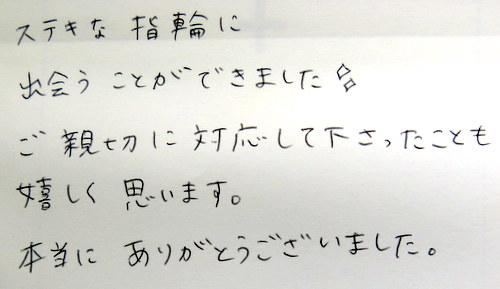 ステキな 指輪に
出会う ことが できました✧
ご 親切に 対応して下さったことも
嬉しく 思います。
本当に ありがとうございました。